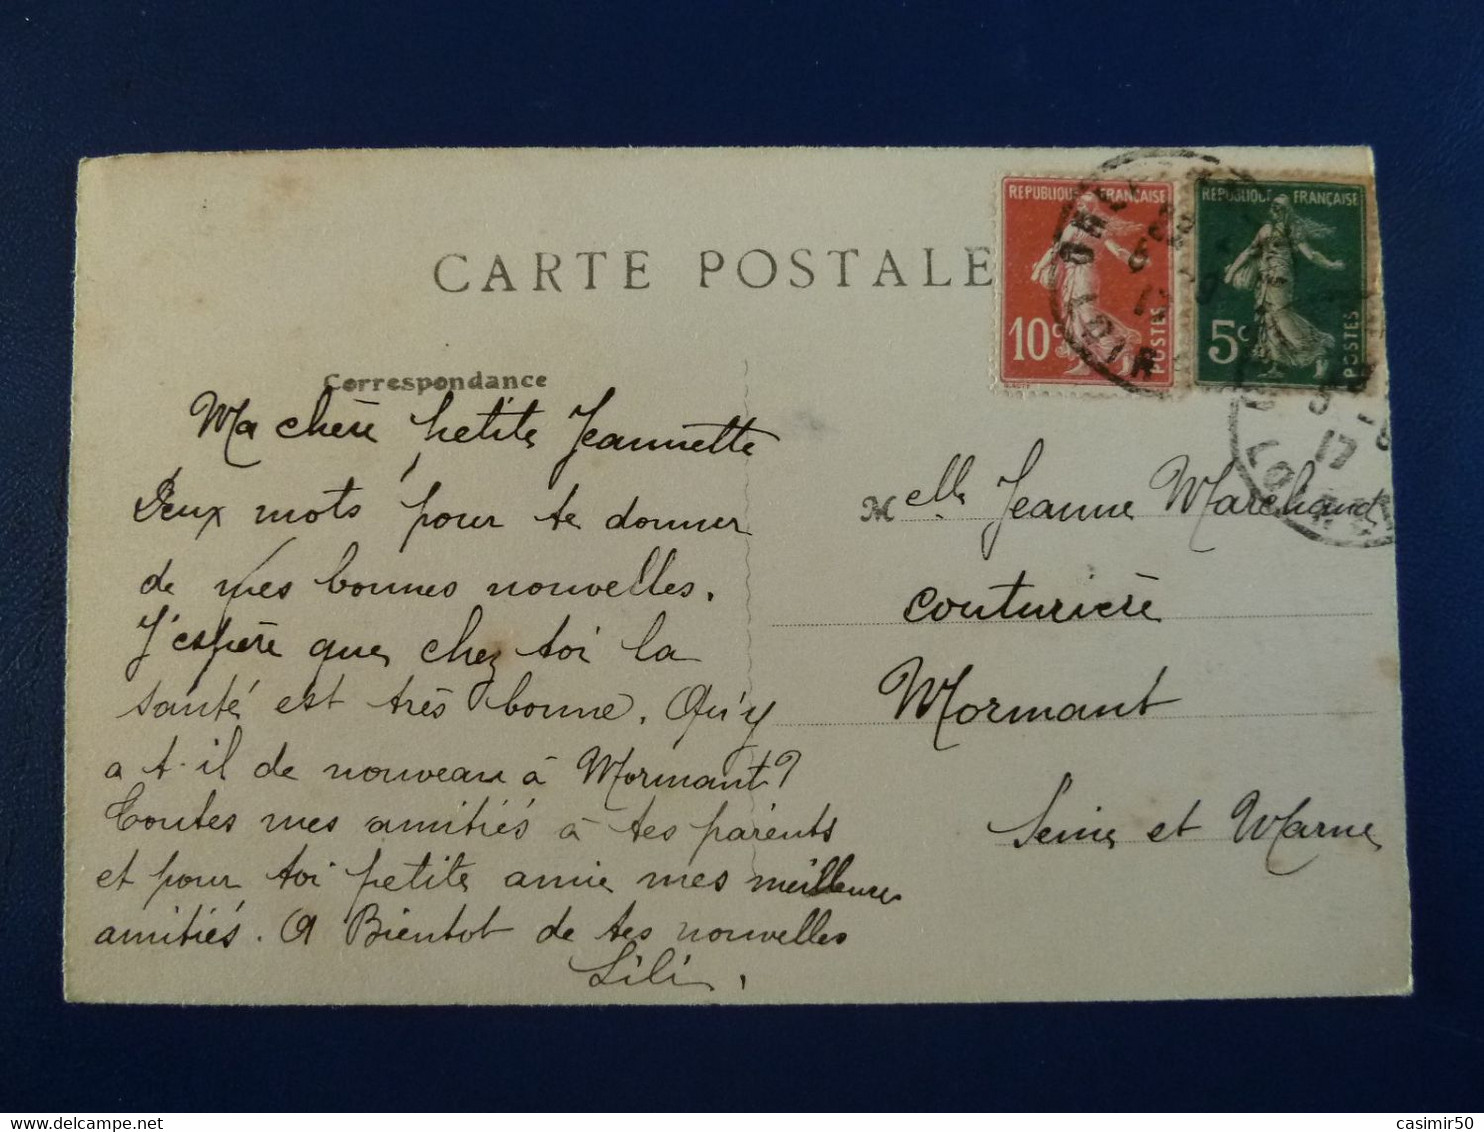 CARTE POSTALE
REPUBLIQUE FRANÇAISE
10c
POSTES
REPUBLIQUE FRANÇAISE
5c
POSTES
Correspondance
Ma chère petite Jeannette
Deux mots pour te donner
de mes bonnes nouvelles.
J'espère que chez toi la
santé est très bonne. Qu'y
a t-il de nouveau à Mormant?
Toutes mes amitiés à tes parents
et pour toi petite amie mes meilleures
amitiés. A Bientot de tes nouvelles
Lili.
Melle Jeanne Marchand
couturière
Mormant
Seine et Marne
casimir50